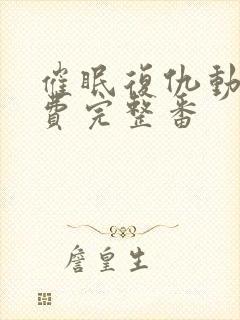 催眠復仇動
費完整番
詹皇生